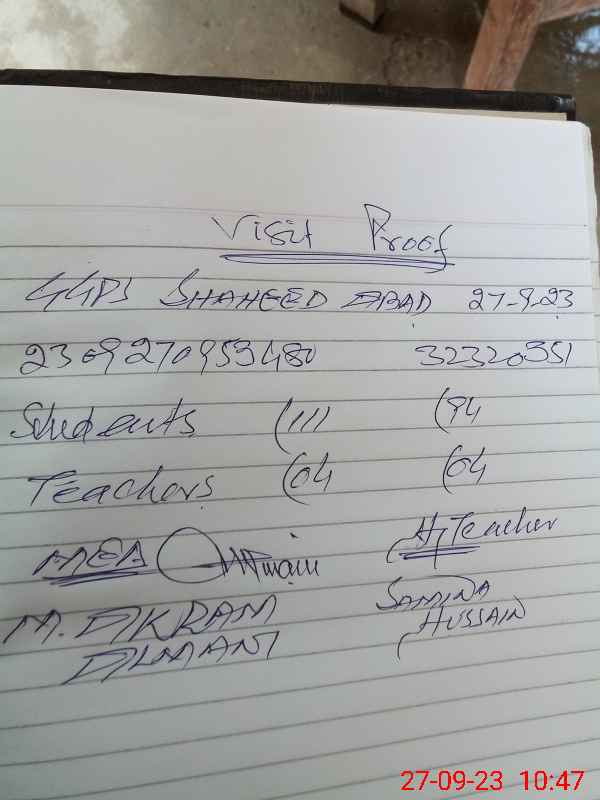 Visit Proof
GGPS SHAHEED ABAD 27-9-23
2309270953480 32320351
Students (111 (94
Teachers (04 (04
MEA H/Teacher
M. IKRAM SAMINA
HUSSAIN
27-09-23 10:47